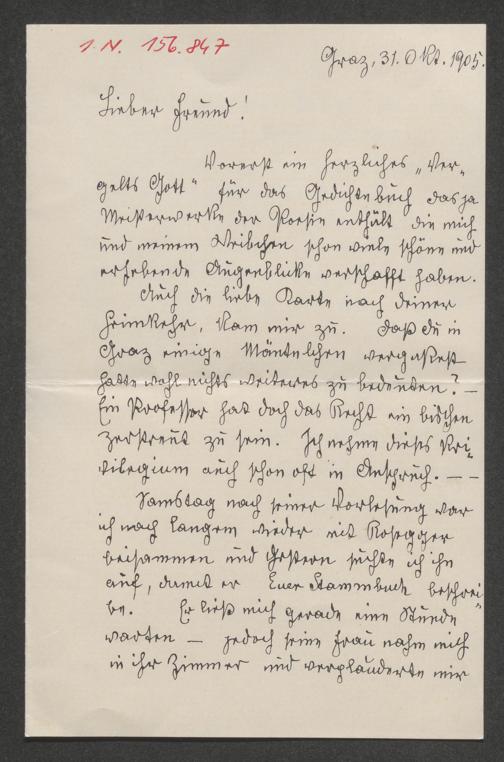 I. N. 156.847
Graz, 31. Okt. 1905.
Lieber Freund!
Vorerst ein herzliches „Ver-
gelts Gott" für das Gedichtebuch das ja
Meisterwerke der Poesie enthält die mich
und meinem Weibchen schon viele schöne und
erhebende Augenblicke verschafft haben.
Auch die liebe Karte nach deiner
Heimkehr, kam mir zu. Daß du in
Graz einige Mäntelchen vergaßest
hatte wohl nichts weiteres zu bedeuten? —
Ein Professor hat doch das Recht ein bischen
zerstreut zu sein. Ich nehme dieses Pri-
vilegium auch schon oft in Anspruch. — —
Samstag nach seiner Vorlesung war
ich nach langem wieder mit Rosegger
beisammen und gestern suchte ich ihn
auf, damit er Euer Stammbuch beschrei-
be. Er ließ mich gerade eine Stunde
warten — jedoch seine Frau nahm mich
in ihr Zimmer und verplauderte mir